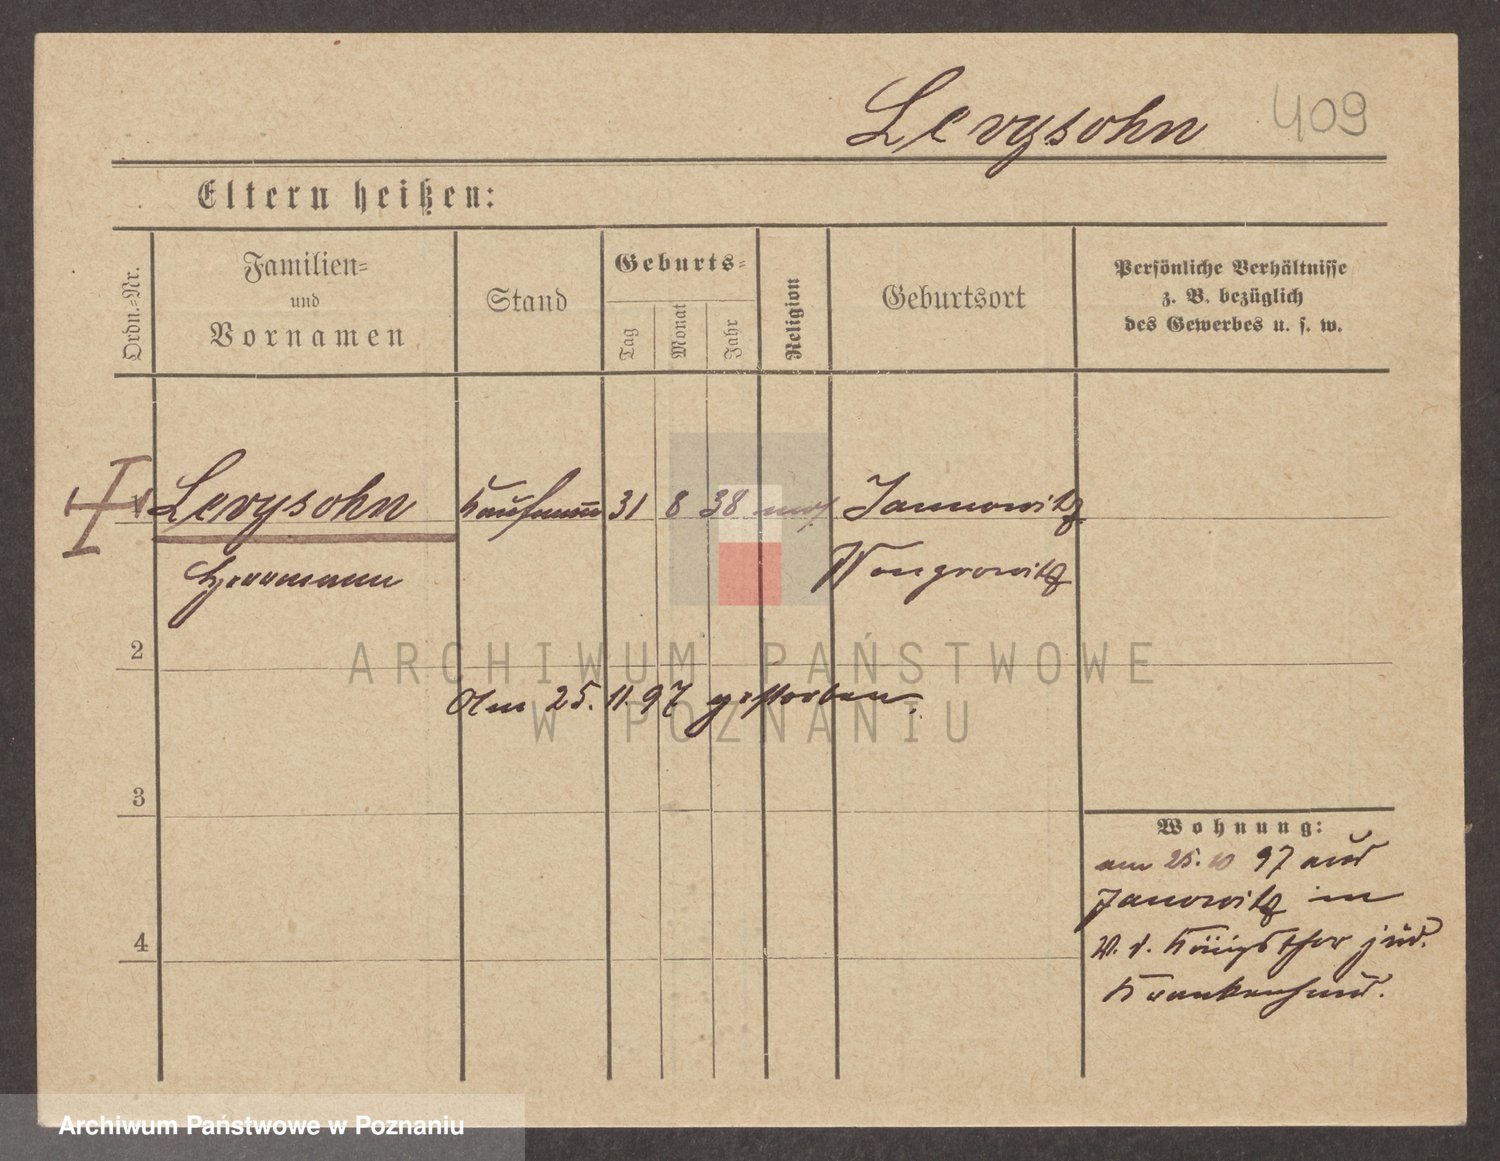 Levysohn 409
Eltern heißen:
Ordn.=Nr.
Familien=
und
Vornamen
Stand
Geburts=
Tag
Monat
Jahr
Religion
Geburtsort
Persönliche Verhältnisse
z. B. bezüglich
des Gewerbes u. s. w.
1 Levysohn Kaufmann 31 8 38 mos Jannowitz
Herrmann Wongrowitz
2
Am 25. 11. 97 gestorben.
3
Wohnung:
am 25. 10 97 aus
Janowitz in
V. d. Königsthor jüd.
4
Krankenhaus.
ARCHIWUM PAŃSTWOWE
W POZNANIU
Archiwum Państwowe w Poznaniu